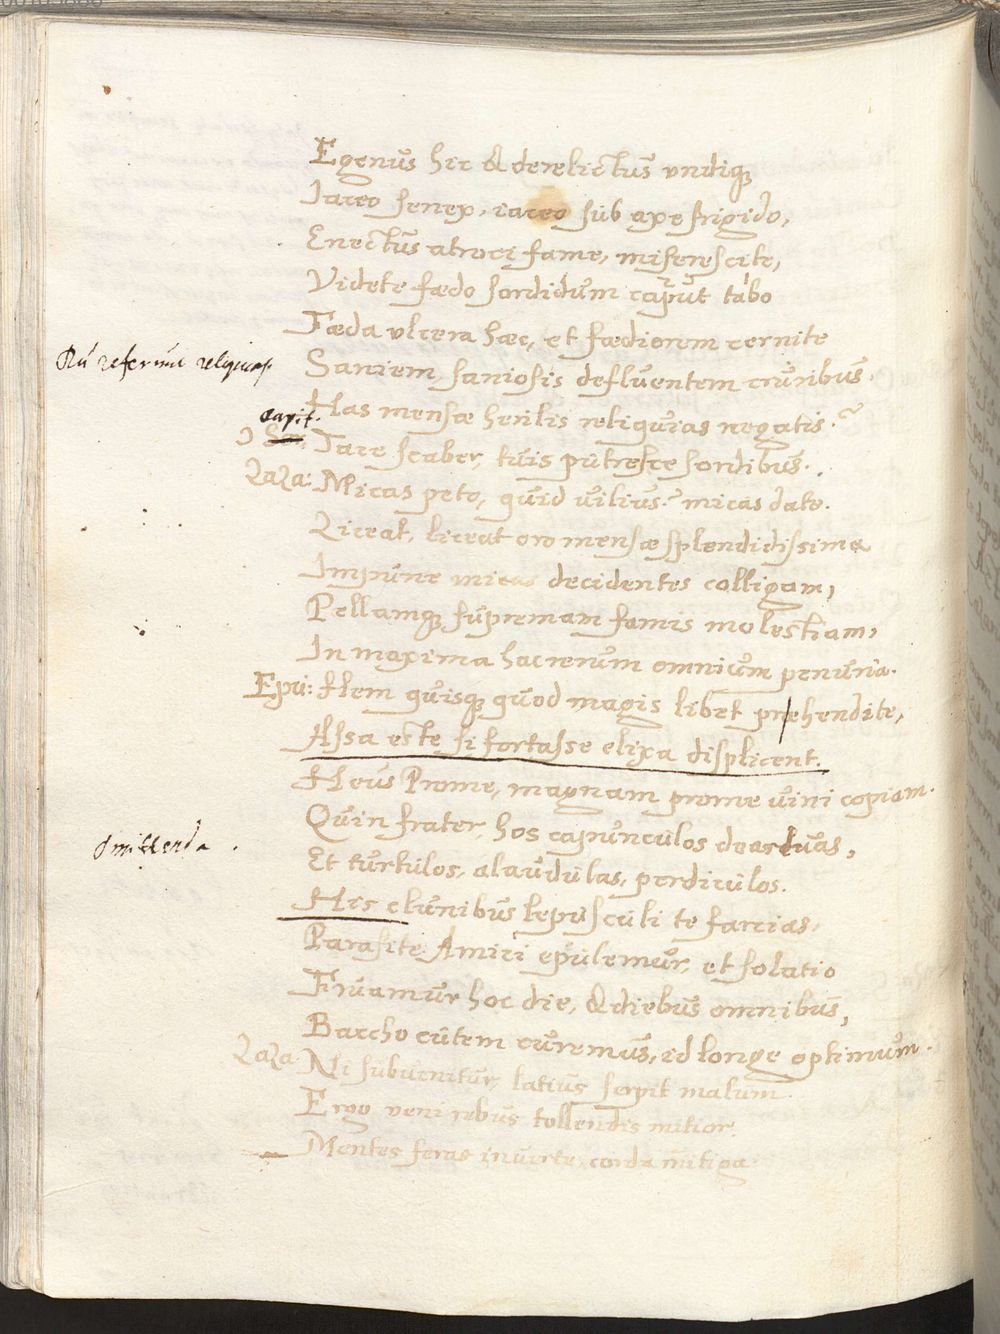 Egenus hic & derelictus undiq
Iaceo senex, iaceo sub axe frigido,
Enectus atroci fame, miserescite,
Videte fœdo sordidum caput tabo
Fæda ulcera hæc, et fædiorem cernite
Saniem saniosis defluentem cruribus.
Dū referunt reliquias.
Has mensæ herilis reliquias negatis?
capit.
Iace scaber, tuis putresce sordibus.
LaZa: Micas peto, quid vilius? micas dato.
Liceat, liceat oro mensæ splendidissimæ
Impune micas decidentes colligam,
Pellamq supremam famis molestiam,
In maxima hac rerum omnium penuria.
Epu: Hem quisq quod magis libet prehendite,
Assa este si fortasse elixa displicent.
Heus Prome, magnam prome vini copiam.
Quin frater, hos capunculos deartuas,
omittenda.
Et turtulos, alaudulas, perdiculos.
His clunibus lepusculi te farcias,
Parasite Amici epulemur, et solatio
Fruamur hoc die, & diebus omnibus,
Baccho cutem curemus, id longe optimum.
LaZa Ni subvenitur, latius serpit malum.
Ergo veni rebus tollendis mitior.
Mentes feras inverte, corda mitiga